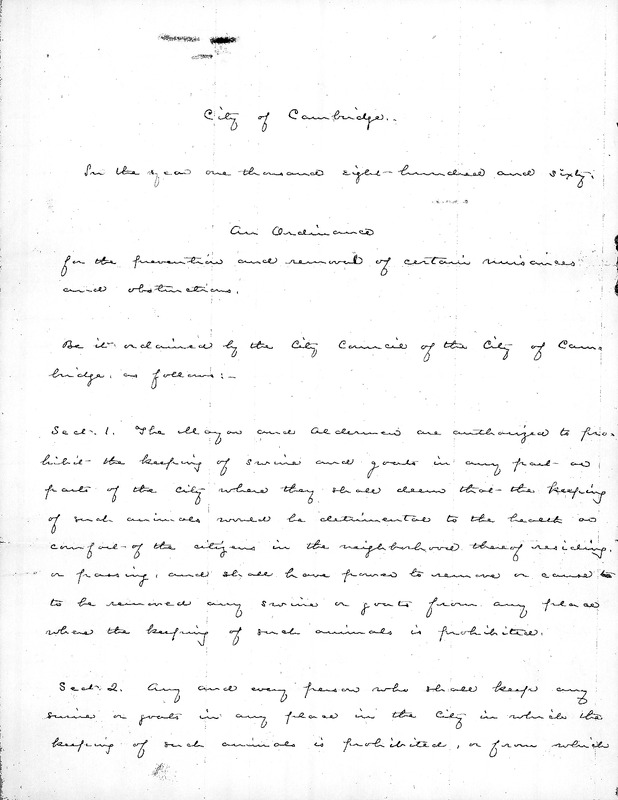 City of Cambridge..
In the year one thousand eight hundred and sixty.
An Ordinance
for the prevention and removal of certain nuisances
and obstructions.
Be it ordained by the City Council of the City of Cam-
bridge, as follows:-
Sect. 1. The Mayor and Aldermen are authorized to pro-
hibit the keeping of swine and goats in any part or
parts of the city where they shall deem that the keeping
of such animals would be detrimental to the health or
comfort of the citizens in the neighborhood thereof residing,
or passing, and shall have power to remove or cause to
to be removed any swine or goats from any place
where the keeping of such animals is prohibited.
Sect. 2. Any and every person who shall keep any
swine or goats in any place in the City in which the
keeping of such animals is prohibited, or from which